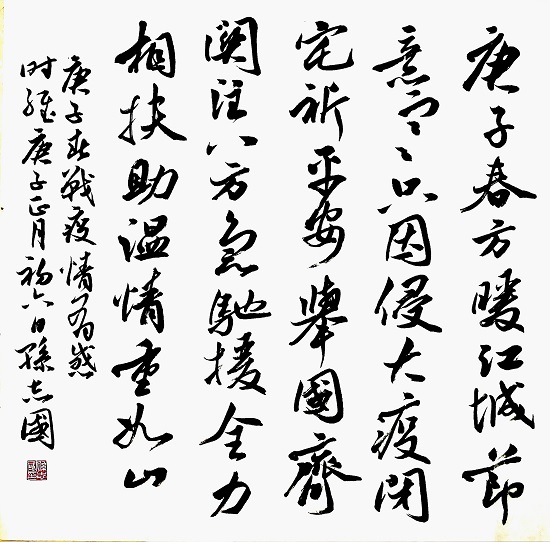 庚子春方暖江城節
意寒只因侵大疫閉
宅祈平安舉國齊
関注八方急馳援全力
相扶助温情重如山
庚子春戰疫情有感
时維庚子正月初六日孫志國